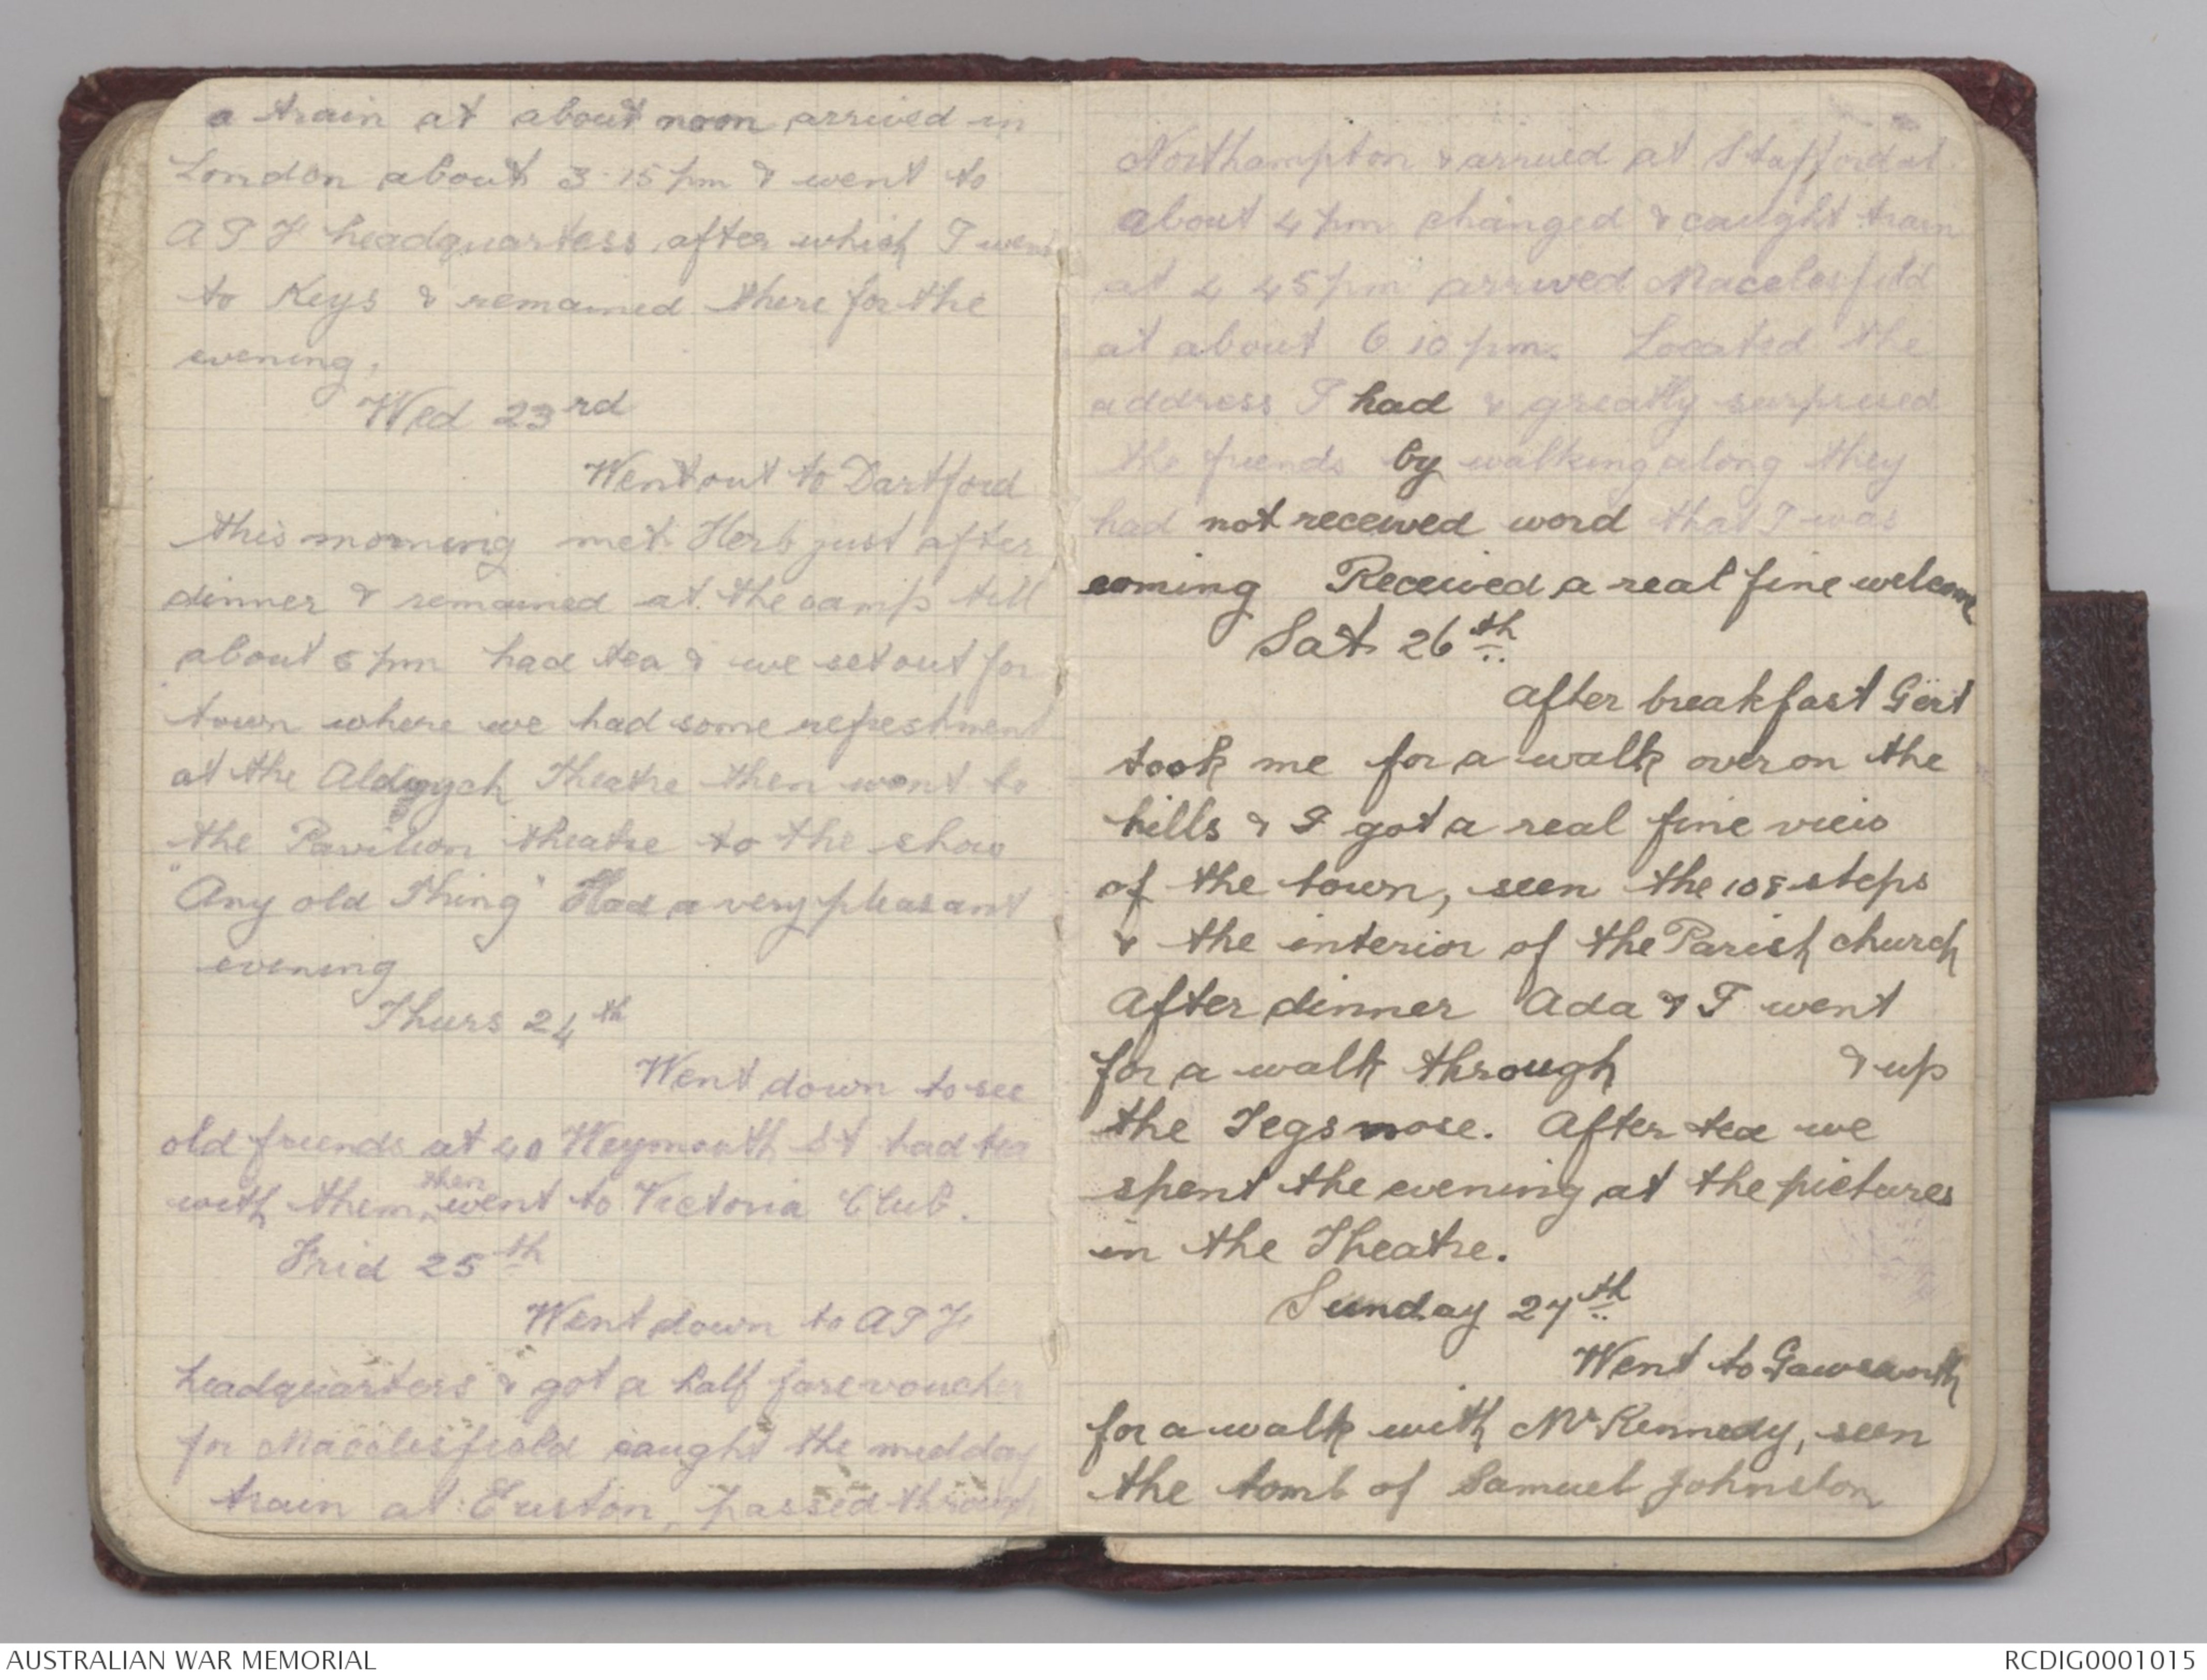 a train at about noon arrived in
London about 3.15 pm & went to
A I F headquarters after which I went
to Keys & remained there for the
evening.
Wed 23rd
Went out to Dartford
this morning met Herb just after
dinner & remained at the camp till
about 5 pm had tea & we set out for
town where we had some refreshment
at the Aldwych Theatre then went to
the Pavilion theatre to the show
"Any old Thing" Had a very pleasant
evening
Thurs 24th
Went down to see
old friends at 40 Weymouth St had tea
with them then went to Victoria Club.
Frid 25th
Went down to A I F
headquarters & got a half fare voucher
for Macclesfield caught the midday
train at Euston, passed through
Northampton & arrived at Stafford at
about 4 pm changed & caught train
at 4 45 pm arrived Macclesfield
at about 6 10 pm. Located the
address I had & greatly surprised
the friends by walking along they
had not received word that I was
coming Received a real fine welcome
Sat 26th
After breakfast Gert
took me for a walk over on the
hills & I got a real fine view
of the town, seen the 108 steps
& the interior of the Parish church
After dinner Ada & I went
for a walk through & up
the Tegsnose. After tea we
spent the evening at the pictures
in the Theatre.
Sunday 27th
Went to Gawsworth
for a walk with Mr Kennedy, seen
the tomb of Samuel Johnston
AUSTRALIAN WAR MEMORIAL
RCDIG0001015